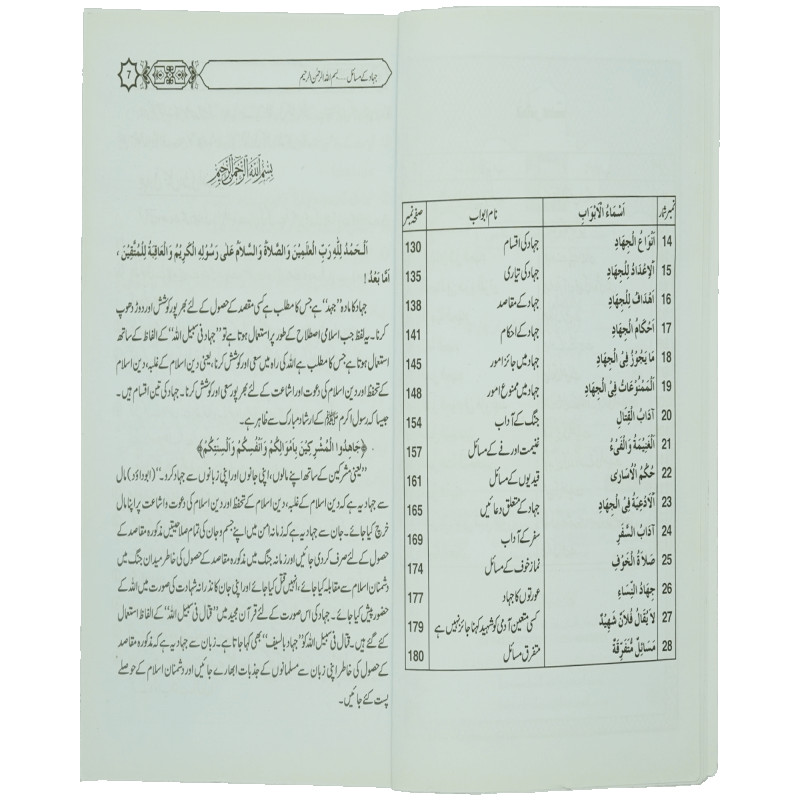 نمبر شمار اَسْمَاءُ الْاَبْوَابِ نام ابواب صفحہ نمبر
14 اَنْوَاعُ الْجِهَادِ جہاد کی اقسام 130
15 اَلْاِعْدَادُ لِلْجِهَادِ جہاد کی تیاری 135
16 اَهْدَافُ لِلْجِهَادِ جہاد کے مقاصد 138
17 اَحْكَامُ الْجِهَادِ جہاد کے احکام 141
18 مَا يَجُوْزُ فِى الْجِهَادِ جہاد میں جائز امور 145
19 اَلْمَمْنُوْعَاتُ فِى الْجِهَادِ جہاد میں ممنوع امور 148
20 آدَابُ الْقِتَالِ جنگ کے آداب 154
21 اَلْغَنِيْمَةُ وَالْفَىْءُ غنیمت اور فے کے مسائل 157
22 حُكْمُ الْاُسَارٰى قیدیوں کے مسائل 161
23 اَلْاَدْعِيَةُ فِى الْجِهَادِ جہاد کے متعلق دعائیں 165
24 آدَابُ السَّفَرِ سفر کے آداب 169
25 صَلَاةُ الْخَوْفِ نماز خوف کے مسائل 174
26 جِهَادُ النِّسَاءِ عورتوں کا جہاد 177
27 لَا يُقَالُ فُلَانٌ شَهِيْدٌ کسی متعین آدمی کو شہید کہنا جائز نہیں ہے 179
28 مَسَائِلُ مُتَفَرِّقَةٌ متفرق مسائل 180
جہاد کے مسائل ..... بسم اللہ الرحمٰن الرحیم 7
بِسْمِ اللهِ الرَّحْمٰنِ الرَّحِيْمِ
اَلْحَمْدُ لِلّٰهِ رَبِّ الْعٰلَمِيْنَ وَالصَّلَاةُ وَالسَّلَامُ عَلٰى رَسُوْلِهِ الْكَرِيْمِ وَالْعَاقِبَةُ لِلْمُتَّقِيْنَ ،
اَمَّا بَعْدُ !
جہاد کا مادہ ”جہد“ ہے جس کا مطلب ہے کسی مقصد کے حصول کے لئے بھر پور کوشش اور دوڑ دھوپ
کرنا۔ یہ لفظ جب اسلامی اصطلاح کے طور پر استعمال ہوتا ہے تو ”جہاد فی سبیل اللہ“ کے الفاظ کے ساتھ
استعمال ہوتا ہے جس کا مطلب ہے اللہ کی راہ میں سعی اور کوشش کرنا، یعنی دین اسلام کے غلبہ، دین اسلام
کے تحفظ اور دین اسلام کی دعوت اور اشاعت کے لئے بھر پور سعی اور کوشش کرنا۔ جہاد کی تین اقسام ہیں۔
جیسا کہ رسول اکرم ﷺ کے ارشاد مبارک سے ظاہر ہے۔
﴿جَاهِدُوا الْمُشْرِكِيْنَ بِاَمْوَالِكُمْ وَاَنْفُسِكُمْ وَاَلْسِنَتِكُمْ﴾
”یعنی مشرکین کے ساتھ اپنے مالوں، اپنی جانوں اور اپنی زبانوں سے جہاد کرو۔“ (ابوداؤد) مال
سے جہاد یہ ہے کہ دین اسلام کے غلبہ، دین اسلام کے تحفظ اور دین اسلام کی دعوت و اشاعت پر اپنا مال
خرچ کیا جائے۔ جان سے جہاد یہ ہے کہ زمانہ امن میں اپنے جسم و جان کی تمام صلاحیتیں مذکورہ مقاصد کے
حصول کے لئے صرف کر دی جائیں اور زمانہ جنگ میں مذکورہ مقاصد کے حصول کی خاطر میدان جنگ میں
دشمنان اسلام سے مقابلہ کیا جائے، انہیں قتل کیا جائے اور اپنی جان کا نذرانہ شہادت کی صورت میں اللہ کے
حضور پیش کیا جائے۔ جہاد کی اس صورت کے لئے قرآن مجید میں ”قتال فی سبیل اللہ“ کے الفاظ استعمال
کئے گئے ہیں۔ قتال فی سبیل اللہ کو ”جہاد بالسیف“ بھی کہا جاتا ہے۔ زبان سے جہاد یہ ہے کہ مذکورہ مقاصد
کے حصول کی خاطر اپنی زبان سے مسلمانوں کے جذبات ابھارے جائیں اور دشمنان اسلام کے حوصلے
پست کئے جائیں۔